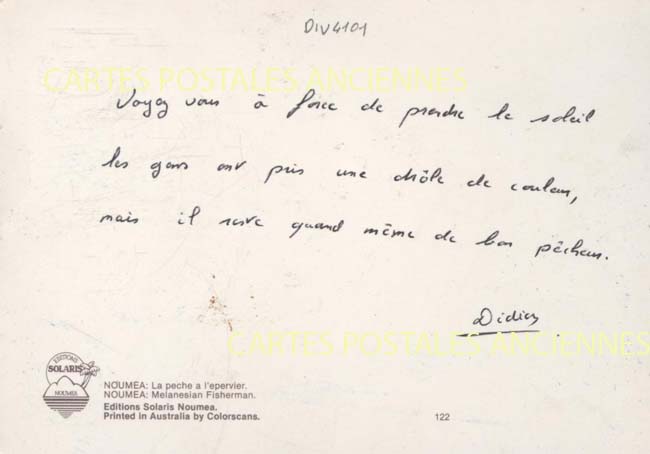 DIV4101
CARTES POSTALES ANCIENNES
Voyez vous à force de prendre le soleil
les gens ont pris une drôle de couleur,
mais il reste quand même de bon pêcheur.
Didier
CARTES POSTALES ANCIENNES
EDITIONS
SOLARIS
NOUMEA
NOUMEA: La peche a l'epervier.
NOUMEA: Melanesian Fisherman.
Editions Solaris Noumea.
Printed in Australia by Colorscans.
122